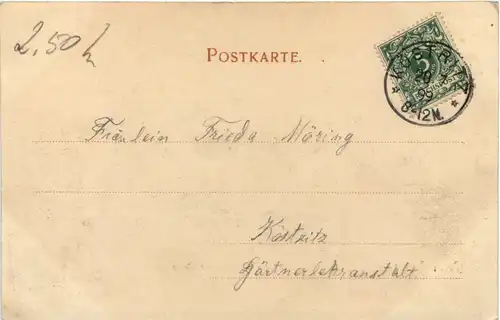 2,50
POSTKARTE.
KÖSTRITZ
8-12N.
5
Fräulein Frieda Möring
Köstritz
Gärtnerlehranstalt